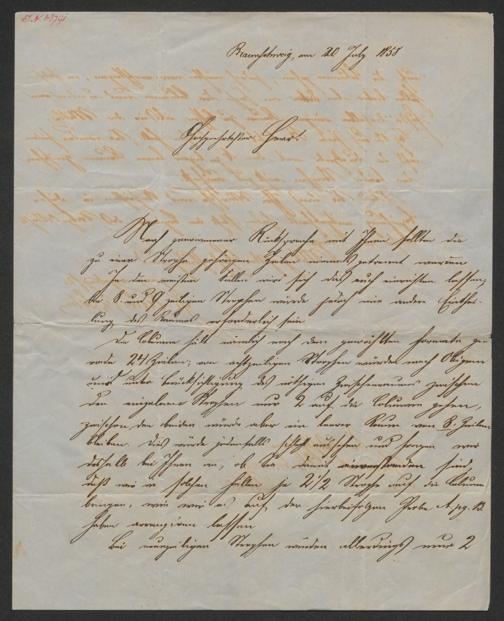 Braunschweig, am 20 July 1858
Hochgeehrtester Herr!
Nach genommener Rücksprache mit Ihnen sollten die
zu einer Strophe gehörigen Zeilen niemals getrennt werden
In den meisten Fällen wird sich das auch einrichten lassen,
bei 8 und 9 zeiligen Strophen würde jedoch eine andere Einthei-
lung des Raumes erforderlich sein
Die Columne hält nämlich nach dem gewählten Formate ge-
rade 24 Zeilen; von achtzeiligen Strophen würden nach Obigem
und unter Berücksichtigung des nöthigen Zwischenraums zwischen
den einzelnen Strophen nur 2 auf die Columne gehen,
zwischen den beiden würde aber ein leerer Raum von 8 Zeilen
bleiben. Das würde jedenfalls schlecht aussehen und fragen wir
deshalb bei Ihnen an, ob Sie damit einverstanden sind,
daß wir in solchen Fällen je 2 1/2 Strophe auf die Columne
bringen, wie wir es auf der hierbeifolgenden Probe A pg. 12
haben arrangiren lassen
Bei neunzeiligen Strophen würden allerdings nur 2